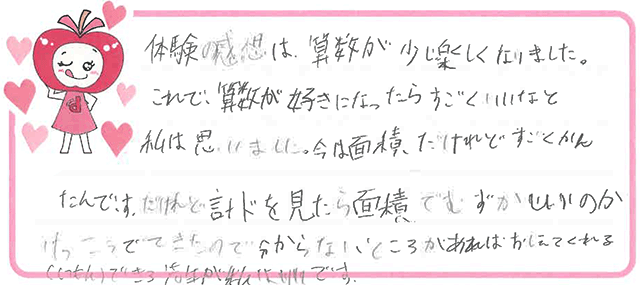 体験の感想は、算数が少し楽しくなりました。
これで、算数が好きになったらすごくいいなと
私は思いました。今は面積、だけれどすごくかん
たんです。だけれど計ドを見たら面積でむずかしいのか
けっこうでてきたので分からないところがあればおしえてくれる
(しつもん)できる先生が私は です。